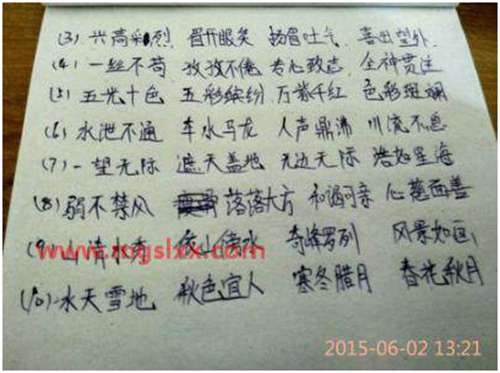 (3) 兴高彩烈 眉开眼笑 扬眉吐气 喜出望外
(4) 一丝不苟 孜孜不倦 专心致志 全神贯注
(5) 五光十色 五彩缤纷 万紫千红 色彩斑斓
(6) 水泄不通 车水马龙 人声鼎沸 川流不息
(7) 一望无际 遮天盖地 无边无际 浩如星海
(8) 弱不禁风 落落大方 和谒可亲 心慈面善
(9) 山清水秀 奇峰罗列 风景如画
www.mgslzx.com
(10) 冰天雪地 秋色宜人 寒冬腊月 春花秋月
2015-06-02 13:21